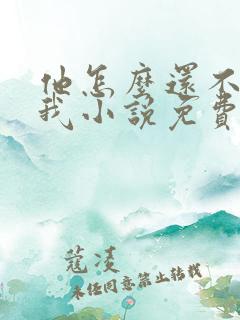 他怎麼還不
我小說免費
蔻凌
未经同意禁止转载